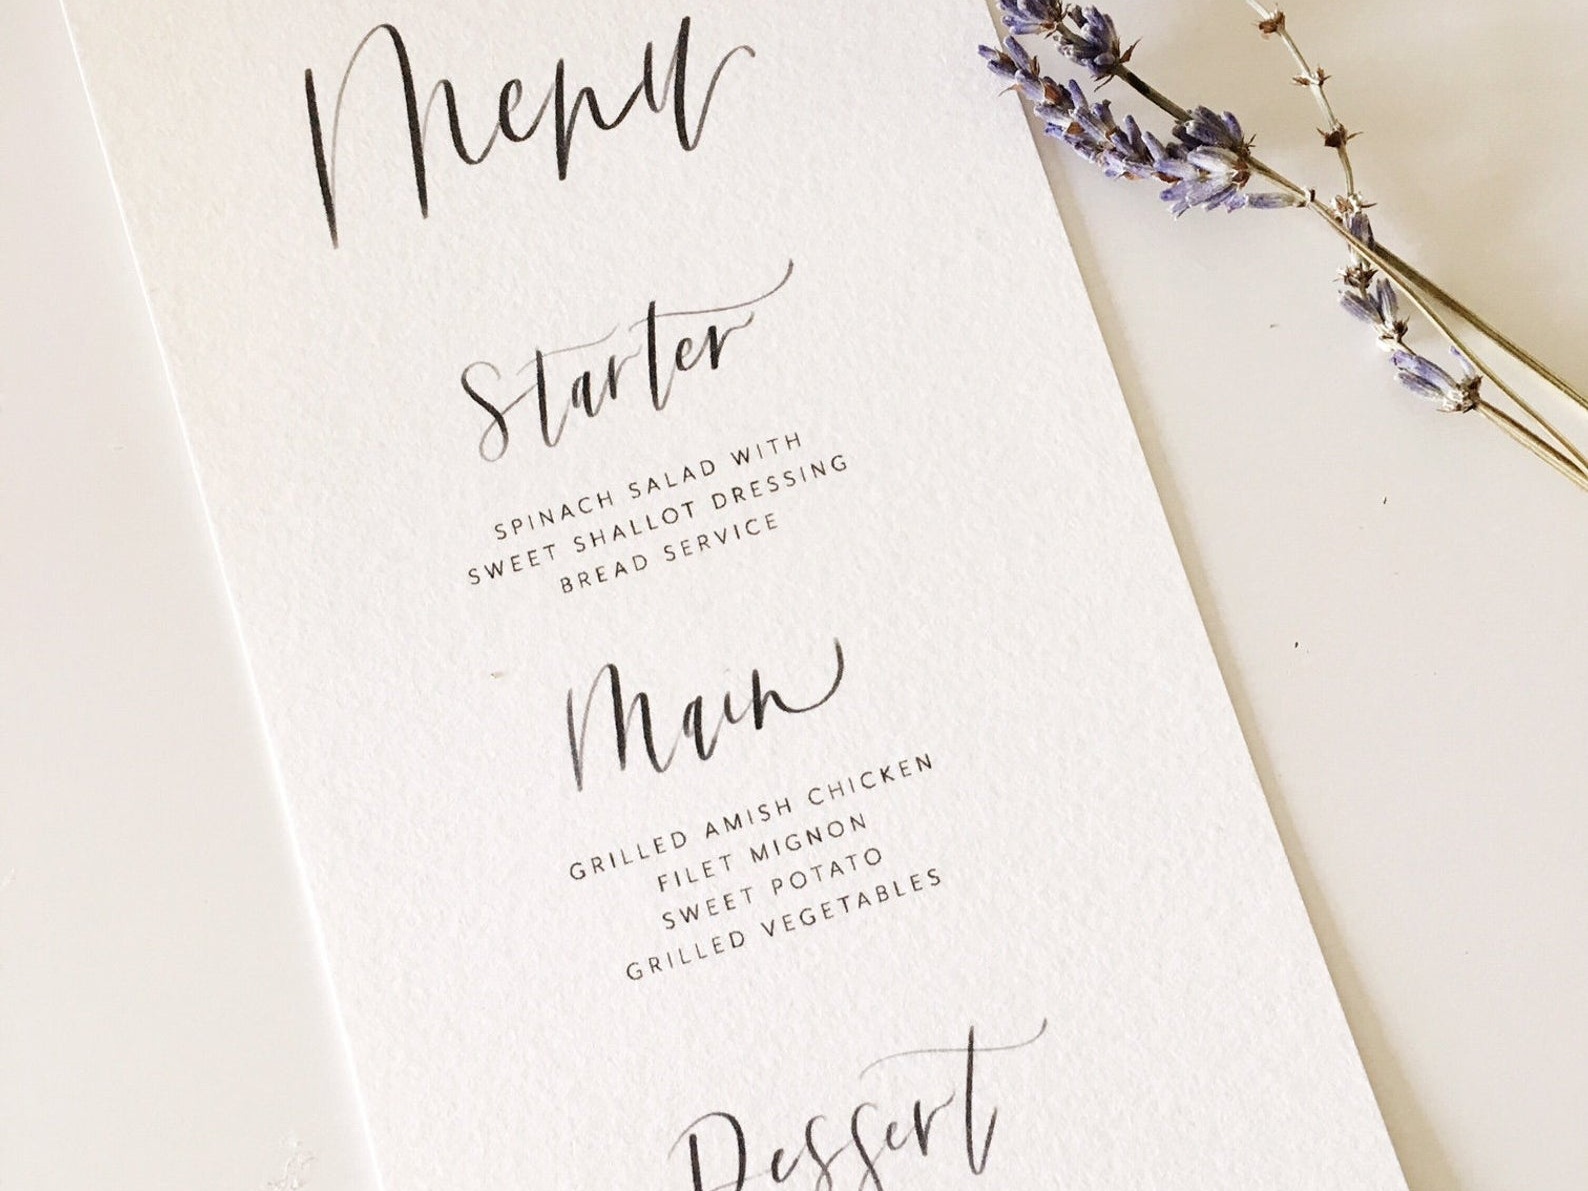 Menu
Starter
SPINACH SALAD WITH
SWEET SHALLOT DRESSING
BREAD SERVICE
Main
GRILLED AMISH CHICKEN
FILET MIGNON
SWEET POTATO
GRILLED VEGETABLES
Dessert